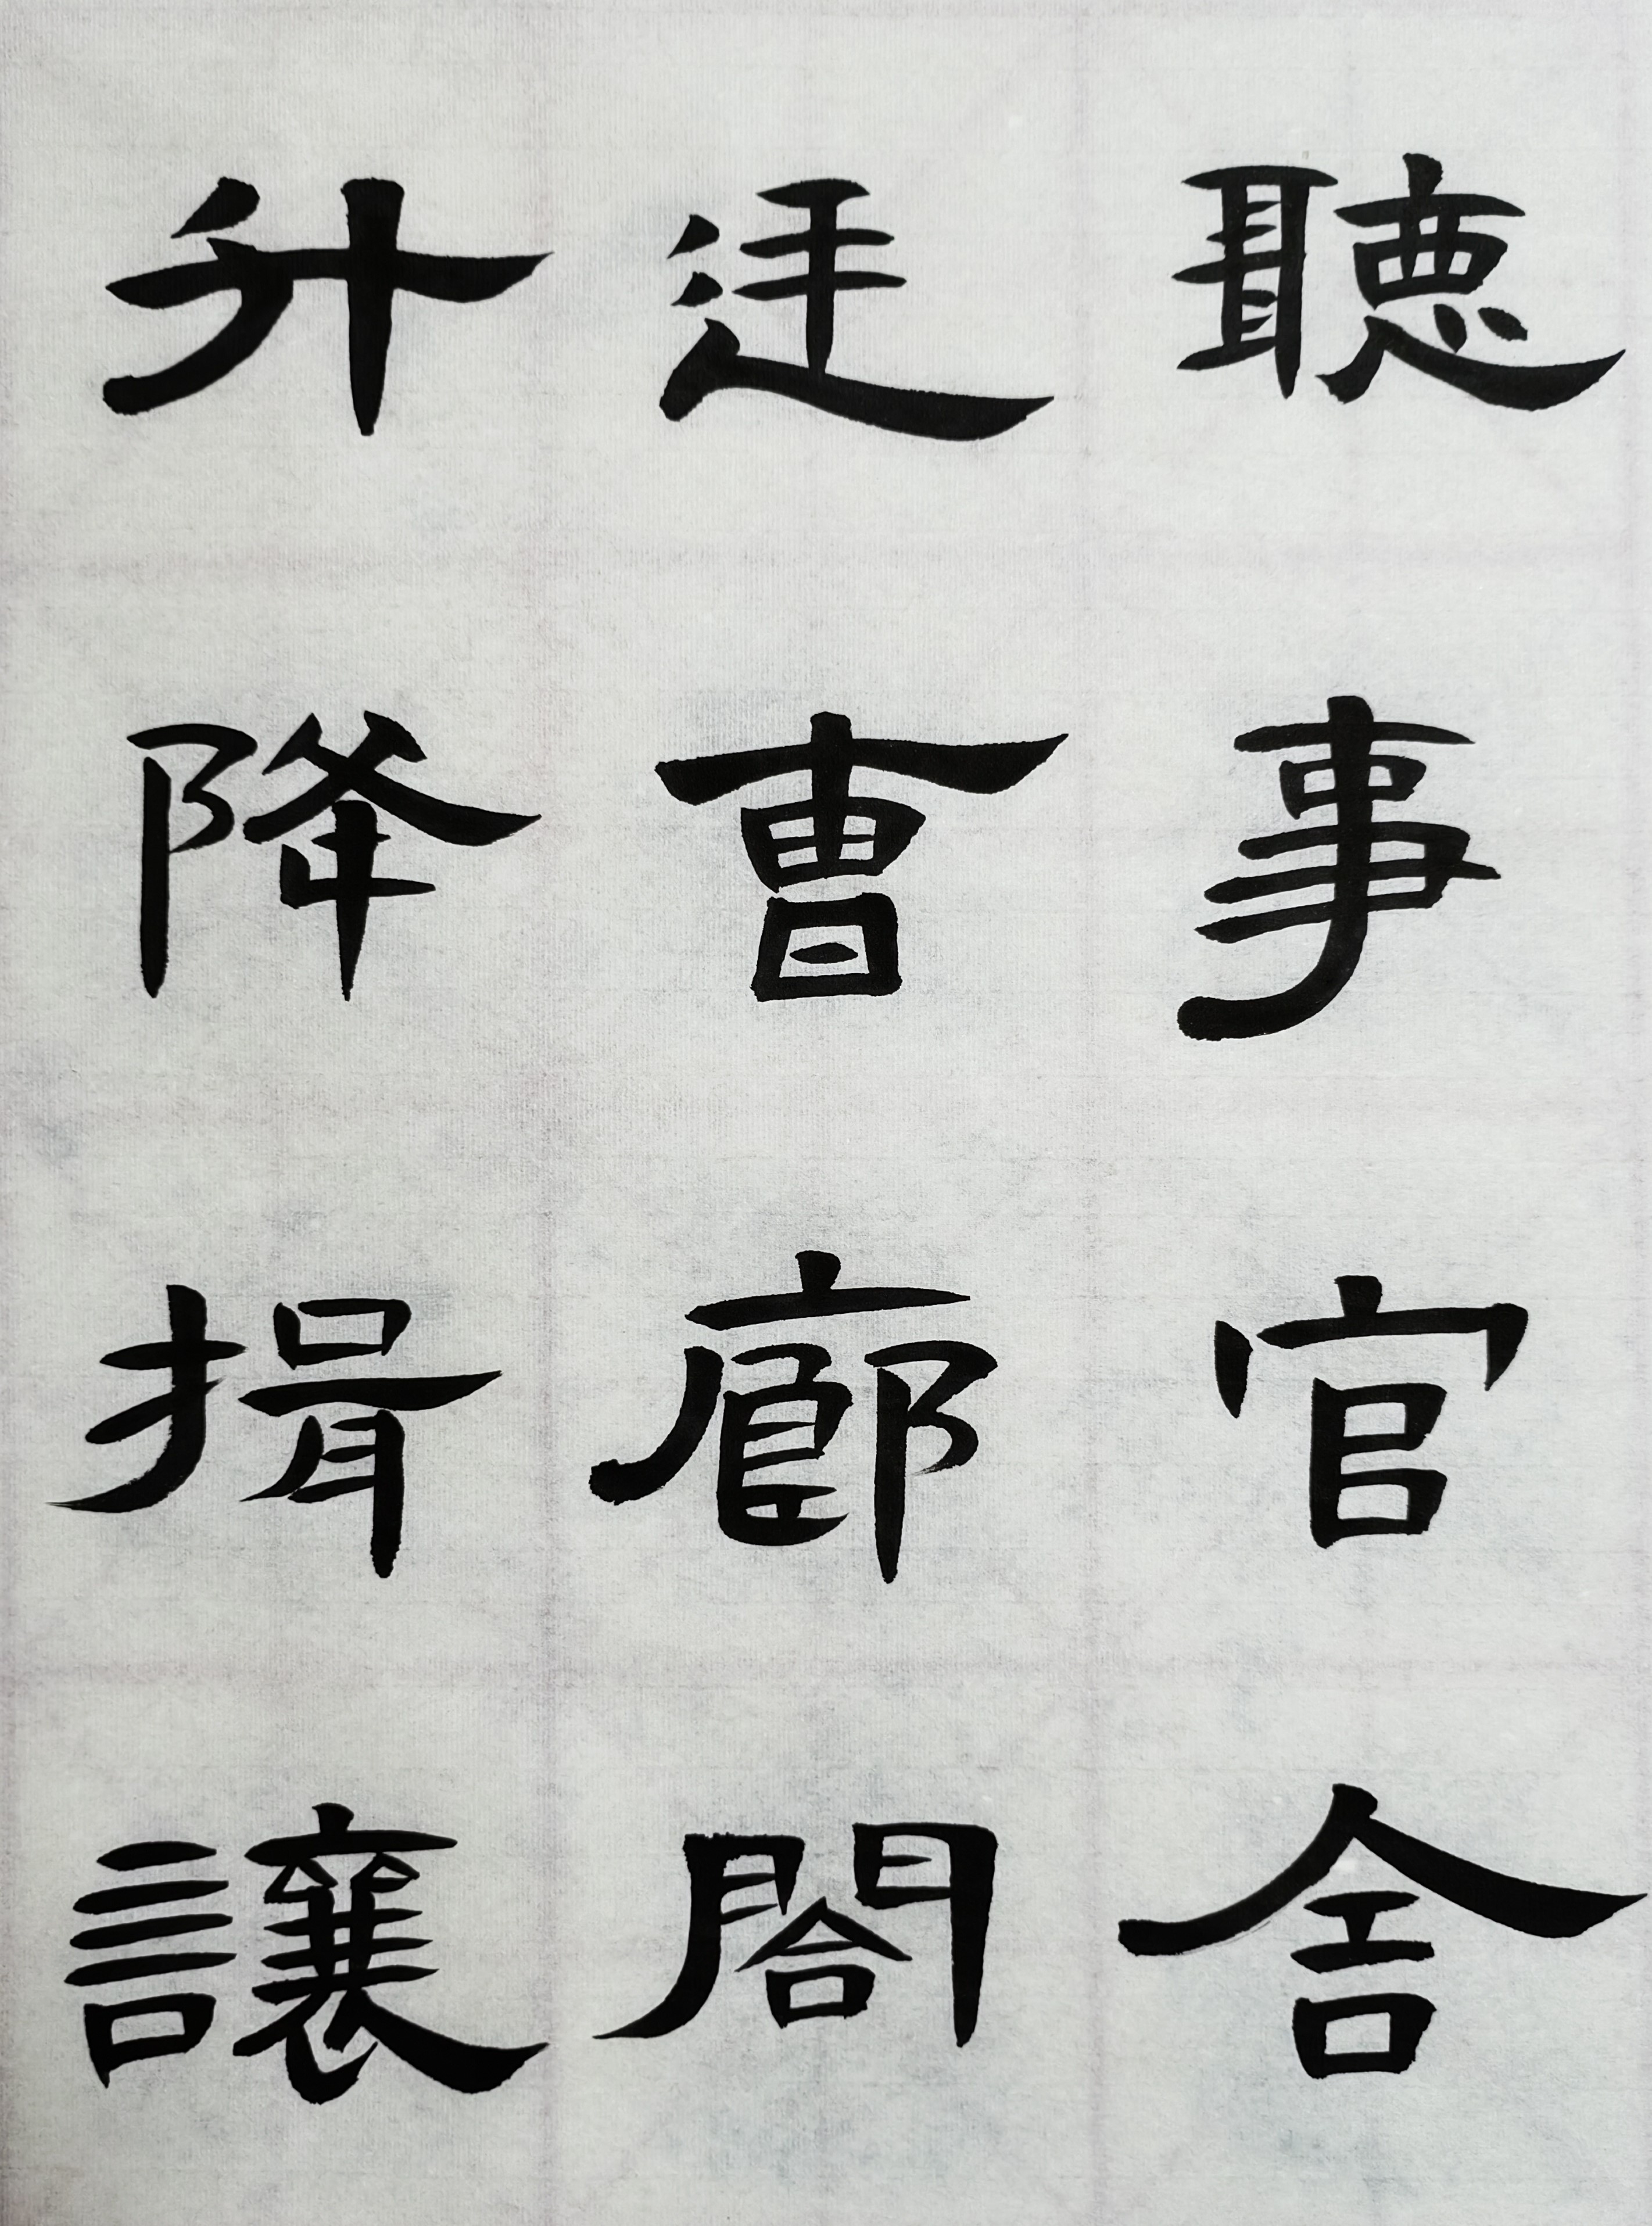 聽事官舍
廷曹廊閤
升降揖讓